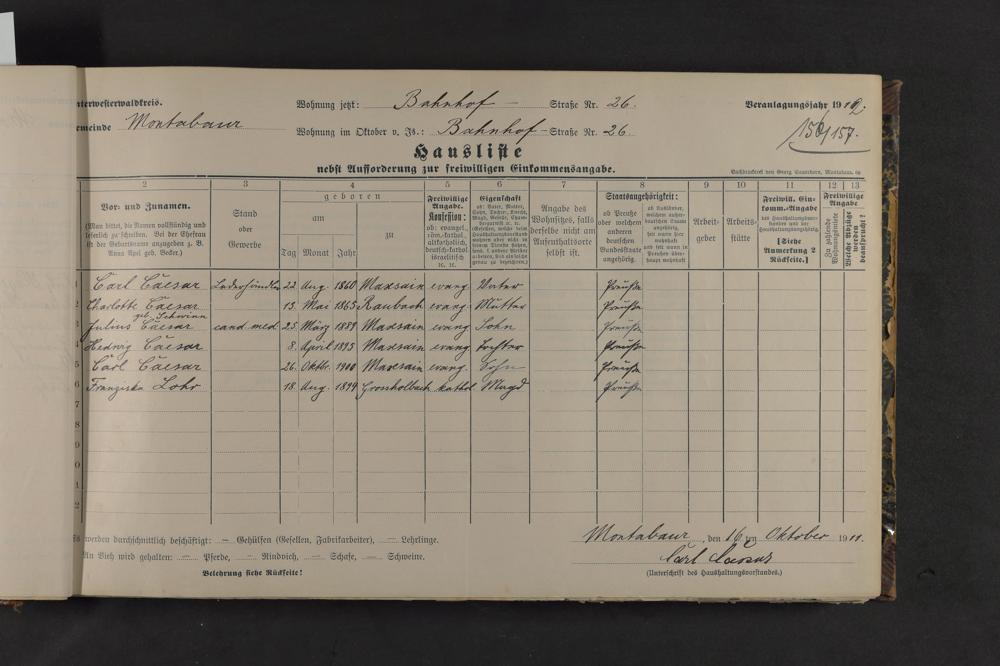 nterwesterwaldkreis.
Wohnung jetzt: Bahnhof - Straße Nr. 26.
Veranlagungsjahr 1912.
emeinde Montabaur
Wohnung im Oktober v. Js.: Bahnhof - Straße Nr. 26.
156/157.
Hausliste
nebst Aufforderung zur freiwilligen Einkommensangabe.
Buchdruckerei von Georg Sauerborn, Montabaur.
2 3 4 5 6 7 8 9 10 11 12 13
Vor- und Zunamen.
(Man bittet, die Namen vollständig und
leserlich zu schreiben. Bei der Ehefrau
ist der Geburtsname anzugeben z. B.
Anna Apel geb. Becker.)
Stand
oder
Gewerbe
geboren
am
zu
Tag Monat Jahr
Freiwillige
Angabe.
Konfession:
ob: evangel.,
röm.-kathol.,
altkatholisch,
deutsch-kathol.
israelitisch
rc. rc.
Eigenschaft
Angabe des
Wohnsitzes, falls
derselbe nicht am
Aufenthaltsorte
selbst ist.
Staatsangehörigkeit:
ob Preuße
oder welchem
anderen
deutschen
Bundesstaate
angehörig.
ob Ausländer,
Arbeit-
geber
Arbeits-
stätte
Freiwill. Ein-
komm.-Angabe
[Siehe
Anmerkung 2
Rückseite.]
Freiwillige
Angabe
Zu zahlende
Wohnungsmiete
Welche Abzüge
werden
beansprucht?
1 Carl Caesar Lederhändler 22. Aug. 1860 Maxsain evang. Vater Preuße
Charlotte Caesar geb. Schwinn 13. Mai 1865 Raubach evang. Mutter Preuße
3 Julius Caesar cand. med. 25. März 1889 Maxsain evang. Sohn Preuße
Hedwig Caesar 8. April 1893 Maxsain evang. Tochter Preuße
5 Carl Caesar 26. Oktbr. 1900 Maxsain evang. Sohn Preuße
6 Franziska Lohr 18. Aug. 1894 Gronholbach kathol. Magd Preuße
7
8
9
0
1
2
werden durchschnittlich beschäftigt: — Gehülfen (Gesellen, Fabrikarbeiter), — Lehrlinge.
Montabaur, den 16ten Oktober 1911.
An Vieh wird gehalten: — Pferde, — Rindvieh, — Schafe, — Schweine.
Carl Caesar
Belehrung siehe Rückseite!
(Unterschrift des Haushaltungsvorstandes.)